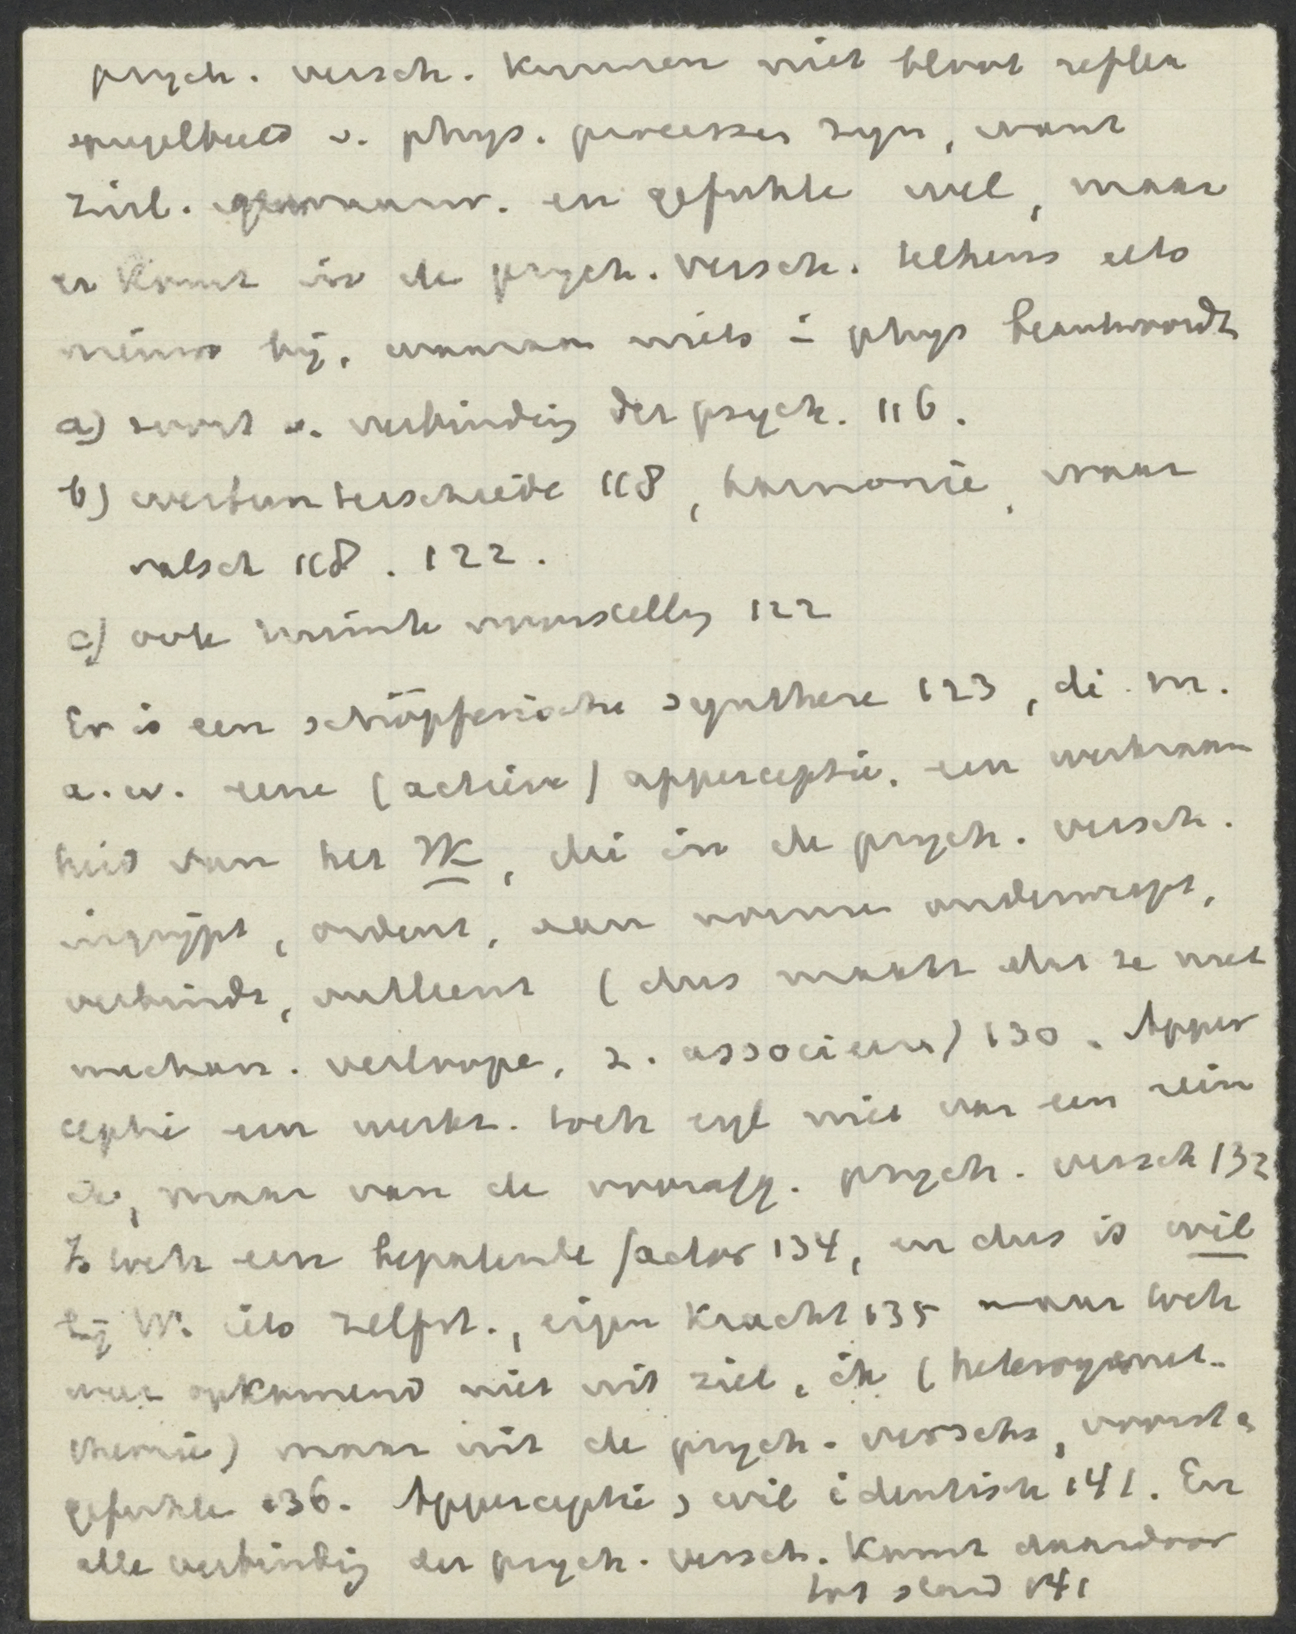 psych. versch. kunnen niet bloot reflex
spiegelbeeld v. phys. processen zijn, want
zinl. gewaarw. en gefuhle wel, maar
er komt in de psych. versch. telkens iets
nieuws bij, waaraan niets i phys beantwoordt
a) soort v. verbinding der psych. 116.
b) wertunterschiede 118, harmonie, waar
valsch 118. 122.
c) ook ruimte voorstellg 122
Er is een schöpferische synthese 123, di. m.
a. w. eene (actieve) apperceptie, een werkzaam
heid van het Ik, die in de psych. versch.
ingrijpt, ordent, aan norme onderwerpt,
verbindt, ontleent (dus maakt dat ze niet
mechan. verloope, z. associeeren) 130. Apper
ceptie een werkz. toch egl niet van een rein
ik, maar van de voorafg. psych. versch 132
Is toch een bepalende factor 134, en dus is wil
bij W. iets zelfst., eigen kracht 135 maar toch
weer opkomend niet uit ziel, ik (heterogenet.
theorie) maar uit de psych. verschs, voorst en
gefuhle 136. Apperceptie, wil identisch 141. En
alle verbindig der psych. versch. komt daardoor
tot stand 141